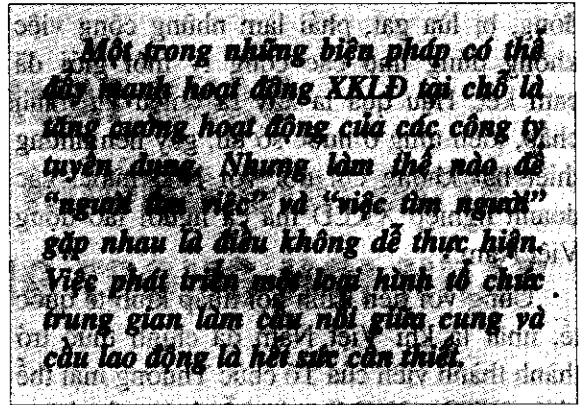 Một trong những biện pháp có thể
đẩy mạnh hoạt động XKLĐ tại chỗ là
tăng cường hoạt động của các công ty
tuyển dụng. Nhưng làm thế nào để
“người tìm việc” và “việc tìm người”
gặp nhau là điều không dễ thực hiện.
Việc phát triển một loại hình tổ chức
trung gian làm cầu nối giữa cung và
cầu lao động là hết sức cần thiết.